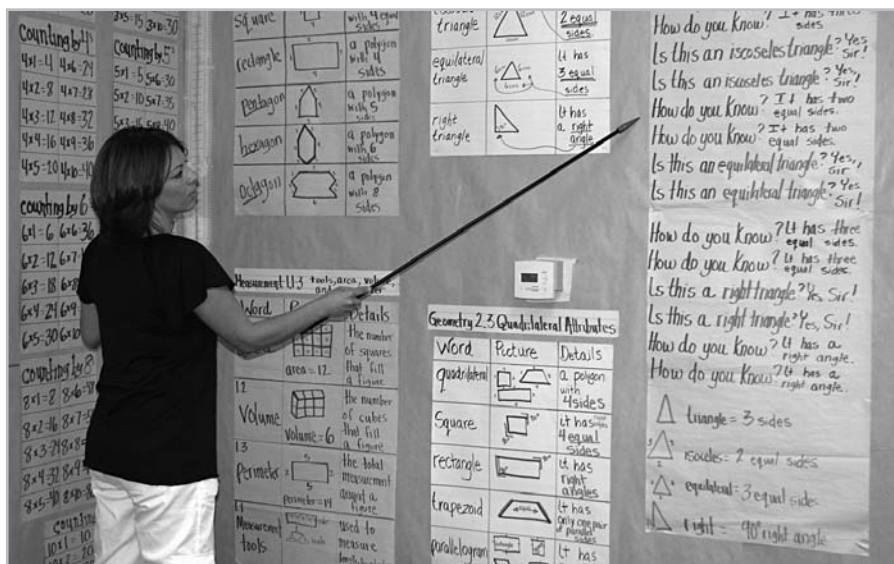 counting by 4's
4x1=4 4x6=24
4x2=8 4x7=28
4x3=12 4x8=32
4x4=16 4x9=36
4x5=20 4x10=40
counting by 6
6x1=6 6x6=36
6x2=12 6x7=
6x3=18 6x8
6x4=24 6x9=
6x5=30 6x10
counting by 8
8x1=8 8x6=
8x2=16 8x7=
8x3=24 8x8=
8x4=32 8x9
8x5=40
counting
10x1=10
3x5=
3x10=30
counting by 5's
5x1=5 5x6=30
5x2=10 5x7=35
5x3=15 5x8=40
square
with 4 equal
sides
rectangle
a polygon
with 4
sides
pentagon
a polygon
with 5
sides
hexagon
a polygon
with 6
sides
octagon
a polygon
with 8
sides
triangle
2 equal
sides.
equilateral
triangle
It has
3 equal
sides
right
triangle
It has
a right
angle
Measurement U.3 tools, area, volume,
Word
Details
area=12
the number
of squares
that fill
a figure
1.2
Volume
volume=6
the number
of cubes
that fill
a figure
1.3
Perimeter
5
perimeter=14
the total
measurement
around a
figure
Measurement
tools
used to
measure
Geometry 2.3 Quadrilateral Attributes
Word Picture Details
quadrilateral
a polygon
with
4 sides
Square
it has
4 equal
sides
rectangle
it has
right
angles
trapezoid
It has
only one pair
of parallel
sides
parallelogram
It has
How do you know? It has three
sides.
Is this an iscoseles triangle? Yes
Sir!
Is this an iscoseles triangle? Yes,
Sir!
How do you know? It has two
equal sides.
How do you know? It has two
equal sides.
Is this an equilateral triangle? Yes,
Sir!
Is this an equilateral triangle? Yes
Sir!
How do you know? It has three
equal sides.
How do you know? It has three
equal sides.
Is this a right triangle? Yes Sir!
Is this a right triangle? Yes, Sir!
How do you know? It has a
right angle.
How do you know? It has a
right angle.
triangle = 3 sides
isoceles = 2 equal sides
equilateral = 3 equal sides
right = 90° right angle